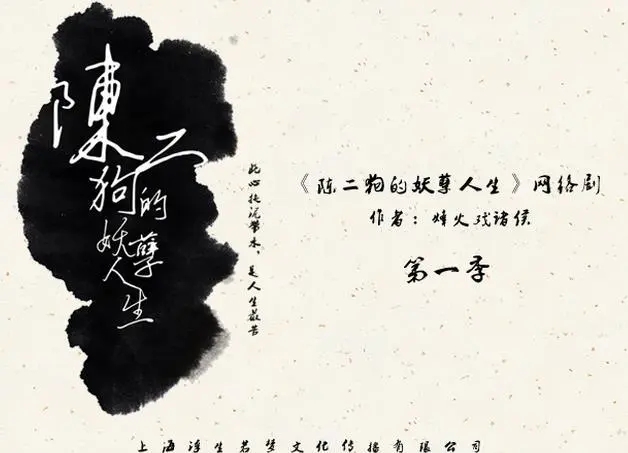 陳二狗的妖孽人生
此心拖泥带水，是人生最苦
《陈二狗的妖孽人生》网络剧
作者：烽火戏诸侯
第一季
上海浮生若梦文化传播有限公司